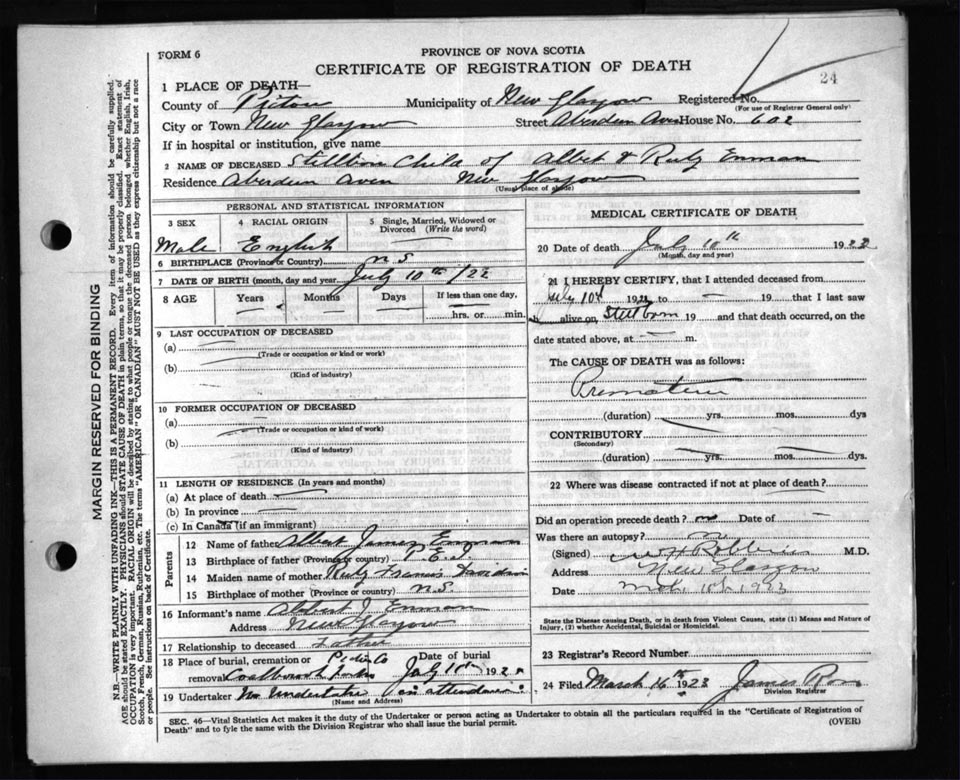 FORM 6
PROVINCE OF NOVA SCOTIA
CERTIFICATE OF REGISTRATION OF DEATH
24
1 PLACE OF DEATH—
County of Pictou Municipality of New Glasgow Registered No.
(For use of Registrar General only)
City or Town New Glasgow Street Aberdeen Aven House No. 602
If in hospital or institution, give name
2 NAME OF DECEASED Stillborn Child of Albert & Ruby Enman
Residence Aberdeen Aven New Glasgow
(Usual place of abode)
PERSONAL AND STATISTICAL INFORMATION
3 SEX 4 RACIAL ORIGIN 5 Single, Married, Widowed or Divorced (Write the word)
Male English
6 BIRTHPLACE (Province or Country) N.S
7 DATE OF BIRTH (month, day and year) July 10th /22
8 AGE Years Months Days If less than one day.
hrs. or min.
9 LAST OCCUPATION OF DECEASED
(a)
(Trade or occupation or kind or work)
(b)
(Kind of industry)
10 FORMER OCCUPATION OF DECEASED
(a)
(Trade or occupation or kind of work)
(b)
(Kind of industry)
11 LENGTH OF RESIDENCE (In years and months)
(a) At place of death
(b) In province
(c) In Canada (if an immigrant)
Parents
12 Name of father Albert James Enman
13 Birthplace of father (Province or country) P.E.I.
14 Maiden name of mother Ruby Francis Davidson
15 Birthplace of mother (Province or country) N.S.
16 Informant's name Albert J. Enman
Address New Glasgow
17 Relationship to deceased Father
18 Place of burial, cremation or removal Pictou Co Date of burial July 192
19 Undertaker No Undertaker in attendance
(Name and Address)
MEDICAL CERTIFICATE OF DEATH
20 Date of death July 10th 1922
(Month, day and year)
21 I HEREBY CERTIFY, that I attended deceased from
July 10th 1922 to 19 that I last saw
h alive on Stillborn 19 and that death occurred, on the
date stated above, at m.
The CAUSE OF DEATH was as follows:
Premature
(duration) yrs. mos. dys
CONTRIBUTORY
(Secondary)
(duration) yrs. mos. dys.
22 Where was disease contracted if not at place of death?
Did an operation precede death? no Date of
Was there an autopsy? no
(Signed) W H Robbins M.D.
Address New Glasgow
Date Mch 1923
State the Disease causing Death, or in death from Violent Causes, state (1) Means and Nature of
Injury, (2) whether Accidental, Suicidal or Homicidal.
23 Registrar's Record Number
24 Filed March 16th 1923 James Ross
Division Registrar
SEC. 46—Vital Statistics Act makes it the duty of the Undertaker or person acting as Undertaker to obtain all the particulars required in the "Certificate of Registration of
Death" and to fyle the same with the Division Registrar who shall issue the burial permit.
(OVER)
MARGIN RESERVED FOR BINDING
N.B.—WRITE PLAINLY WITH UNFADING INK—THIS IS A PERMANENT RECORD. Every item of information should be carefully supplied.
AGE should be stated EXACTLY. PHYSICIANS should STATE CAUSE OF DEATH in plain terms, so that it may be properly classified. Exact statement of
OCCUPATION is very important. RACIAL ORIGIN will be described by stating to what people or tongue the deceased person belonged whether English, Irish,
Scotch, French, German, Russian, Ruthenian, etc. The terms "AMERICAN" OR "CANADIAN" MUST NOT BE USED as they express citizenship but not a race
or people. See instructions on back of Certificate.